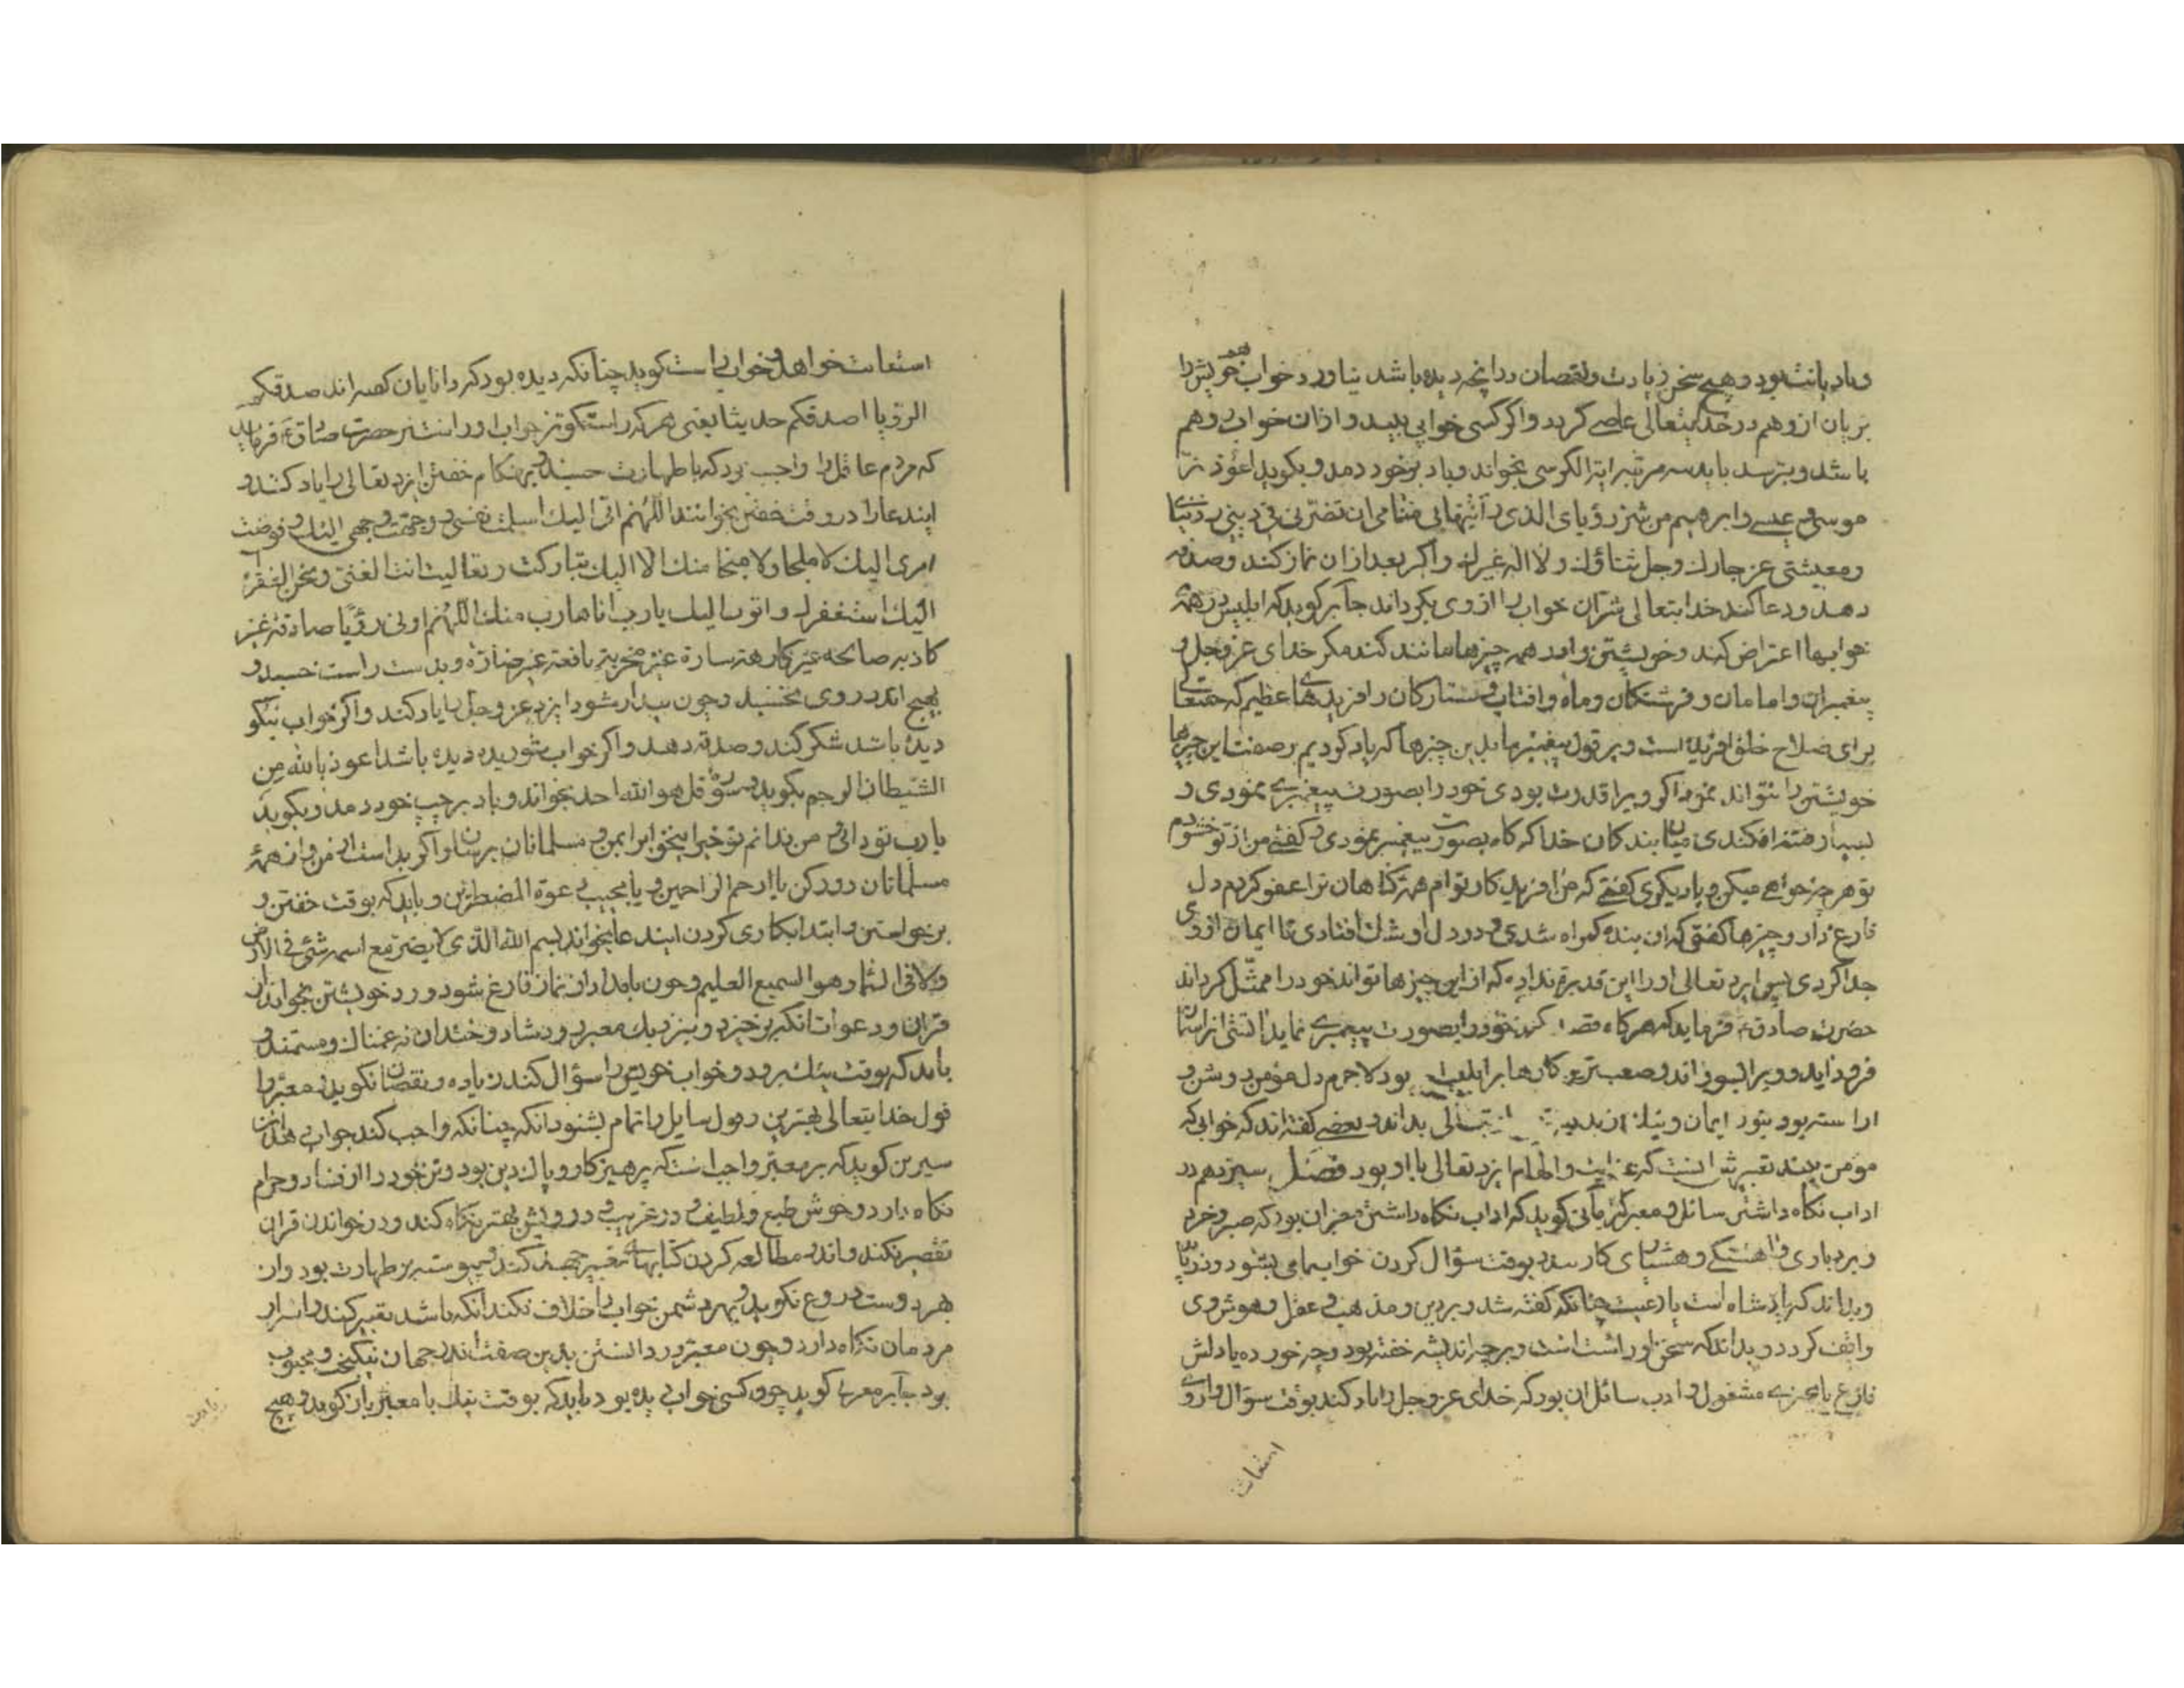 و با دیانت بود و هیچ سخن زیادت و نقصان در آنچه دیده باشد نیاورد خواب خویش را
بزیان ازو هم در خدایتعالی عاصی کردد و اکر کسی خوابی بیند و ازان خوابی وهم
باشد و بترسد باید سه مرتبه ایة الکرسی بخواند و باد بر خود دمد و بکوید اعوذ برب
موسی و عیسی و ابرهیم من شر رؤیای الذی رایتها فی منامی ان تضرنی فی دینی و دنیای
و معیشتی عز جارك وجل ثناؤك ولا اله غیرك و اکر بعد ازان نماز کند و صدقه
دهد و دعا کند خدایتعالی شر آن خواب را ازوی بکرداند جابر کوید که ابلیس در همهٔ
خوابها اعتراض کند و خویشتن را در همه چیزها مانند کند مکر خدای عزوجل و
پیغمبران و امامان و فرشتکان و ماه و افتاب و ستارکان و افریدهای عظیم که حقتعالی
برای صلاح خلق افریده است و بر قول پیغمبر ما بدین چیزها که یاد کردیم بر صفت این چیزها
خویشتن را نتواند نمود اکر ویرا قدرت بودی خود را بصورت پیغمبری نمودی و
بسیار فتنه افکندی میان بندکان خدا که کاه بصورت پیغمبر نمودی و کفتی من از تو خشنودم
تو هر چه خواهی میکن و بار دیکر کفتی که من افریدکار توام همه کناهان ترا عفو کردم دل
فارغ دار و چیزها کفتی که ان بنده کمراه شدی و در دل او شك افتادی تا ایمان ازوی
جدا کردی پس ایزد تعالی او را این قدرت نداده که از این چیزها تواند خود را ممثل کرداند
حضرت صادق ع فرماید که هر کاه قصد کند خود را بصورت پیغمبری نماید اتشی از اسمان
فرود اید و ویرا بسوزاند و صعب ترین کارها بر ابلیس بود لاجرم دل مؤمن روشن و
اراسته بود بنور ایمان و بداند و بعضی کفته اند که خوابی که
مؤمن بیند تعبیرش انست که عنایت و الهام ایزد تعالی با او بود فصل سیزدهم در
اداب نکاه داشتن سائل و معبر کرمانی کوید که اداب نکاه داشتن معبران بود که صبر و خرد
و بردباری و اهستکی و هشیاری کار بندد بوقت سؤال کردن خواب می بشنود و دریابد
و بداند که پادشاه است یا رعیت چنانکه کفته شد و بر دین و مذهب و عقل و هوش وی
واقف کردد و بداند که سخن او راست است و بر چه اندیشه خفته بود و چه خورده یا دلش
فارغ یا بچیزی مشغول و ادب سائل ان بود که خدای عزوجل را یاد کند بوقت سؤال و از وی
استعانت
استعانت خواهد و خوابی راست کوید چنانکه دیده بود که دانایان کفته اند صدقکم
الرؤیا اصدقکم حدیثا یعنی هر که راستکوتر خواب او راستتر حضرت صادق ع فرماید
که مردم عاقل را واجب بود که با طهارت خسبند و بهنکام خفتن ایزد تعالی را یاد کنند و
ایندعا را در وقت خفتن بخوانند اللهم انی الیك اسلمت نفسی و وجهت وجهی الیك و فوضت
امری الیك لا ملجا ولا منجا منك الا الیك تبارکت ربنا تعالیت انت الغنی و نحن الفقراء
الیك استغفرك و اتوب الیك یارب انا هارب منك اللهم ارنی رؤیا صادقة غیر
کاذبه صالحه غیر کارهة سارة غیر مخزیة نافعة غیر ضارة و بدست راست خسبد و
هیچ اندر روی نخسبد و چون بیدار شود ایزد عزوجل را یاد کند و اکر خواب نیکو
دیده باشد شکر کند و صدقه دهد و اکر خواب شوریده دیده باشد اعوذ بالله من
الشیطان الرجیم بکوید و سورهٔ قل هو الله احد بخواند و باد بر چپ خود دمد و بکوید
یارب تو دانی و من ندانم تو خیر این خواب را بمن و مسلمانان برسان و اکر بد است از من و از همهٔ
مسلمانان دور کن یا ارحم الراحمین و یا مجیب دعوة المضطرین و باید که بوقت خفتن و
برخواستن و ابتدا بکاری کردن ایندعا بخواند بسم الله الذی لا یضر مع اسمه شئ فی الارض
ولا فی السماء و هو السمیع العلیم و چون بامداد از نماز فارغ شود ورد خویشتن بخواند از
قران و دعوات انکه برخیزد و بنزدیك معبر رود شاد و خندان نه غمناك و مستمند و
باید که بوقت نیك برود و خواب خویش را سؤال کند زیاده و نقصان نکوید و معبر را
قول خدایتعالی بهترین بود قول سایل را تمام بشنود انکه چنانکه واجب کند جواب دهد ابن
سیرین کوید که بر معبر واجب است که پرهیزکار و پاك دین بود و تن خود را از فساد و حرام
نکاه دارد و خوش طبع و لطیف و در غریب و درویش بهتر نکاه کند و در خواندن قران
تقصیر نکند و اندر مطالعه کردن کتابهای تعبیر جهد کند و پیوسته بر طهارت بود و از
بهر دوست دروغ نکوید و بهر دشمن خواب را خلاف نکند انکه باشد تعبیر کند و اسرار
مردمان نکاه دارد و چون معبر در دانستن بدین صفت اندر جهان نیکبخت و محبوب
بود جابر مغربی کوید چون کسی خوابی دیده بود باید که بوقت نیك با معبر بان کوید و هیچ
زیادت